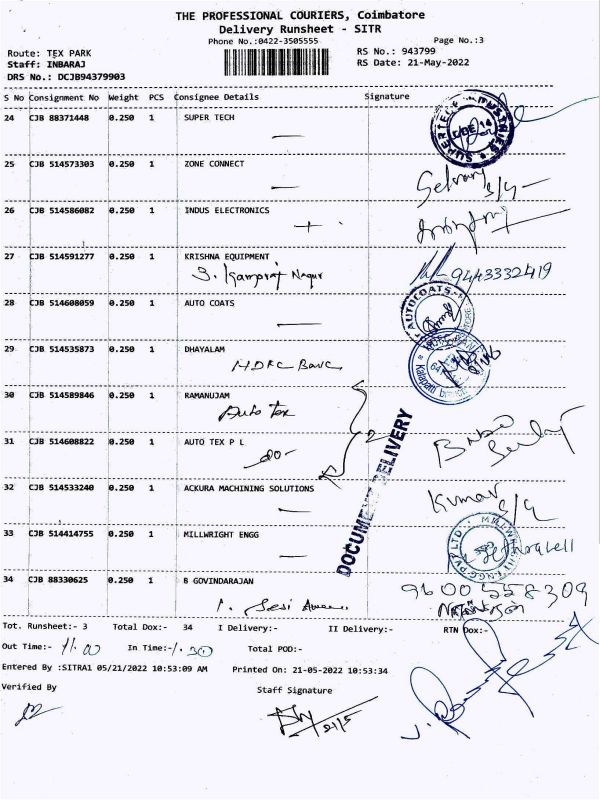 THE PROFESSIONAL COURIERS, Coimbatore
Delivery Runsheet - SITR
Phone No.:0422-3505555 Page No.:3
Route: TEX PARK RS No.: 943799
Staff: INBARAJ RS Date: 21-May-2022
DRS No.: DCJB94379903
S No Consignment No Weight PCS Consignee Details Signature
24 CJB 88371448 0.250 1 SUPER TECH
SUPERTECH INDUSTRIES
25 CJB 514573303 0.250 1 ZONE CONNECT
26 CJB 514586082 0.250 1 INDUS ELECTRONICS
27 CJB 514591277 0.250 1 KRISHNA EQUIPMENT
9443332419
28 CJB 514608059 0.250 1 AUTO COATS
AUTOCOATS
29 CJB 514535873 0.250 1 DHAYALAM
HDFC Banc
30 CJB 514589846 0.250 1 RAMANUJAM
Auto Tex
31 CJB 514608822 0.250 1 AUTO TEX P L
-do-
2
DOCUMENT DELIVERY
32 CJB 514533240 0.250 1 ACKURA MACHINING SOLUTIONS
Kumar
33 CJB 514414755 0.250 1 MILLWRIGHT ENGG
34 CJB 88330625 0.250 1 B GOVINDARAJAN
9600558309
Tot. Runsheet:- 3 Total Dox:- 34 I Delivery:- II Delivery:- RTN Dox:-
Out Time:- 11.00 In Time:- 1.30 Total POD:-
Entered By :SITRA1 05/21/2022 10:53:09 AM Printed On: 21-05-2022 10:53:34
Verified By Staff Signature
21/5